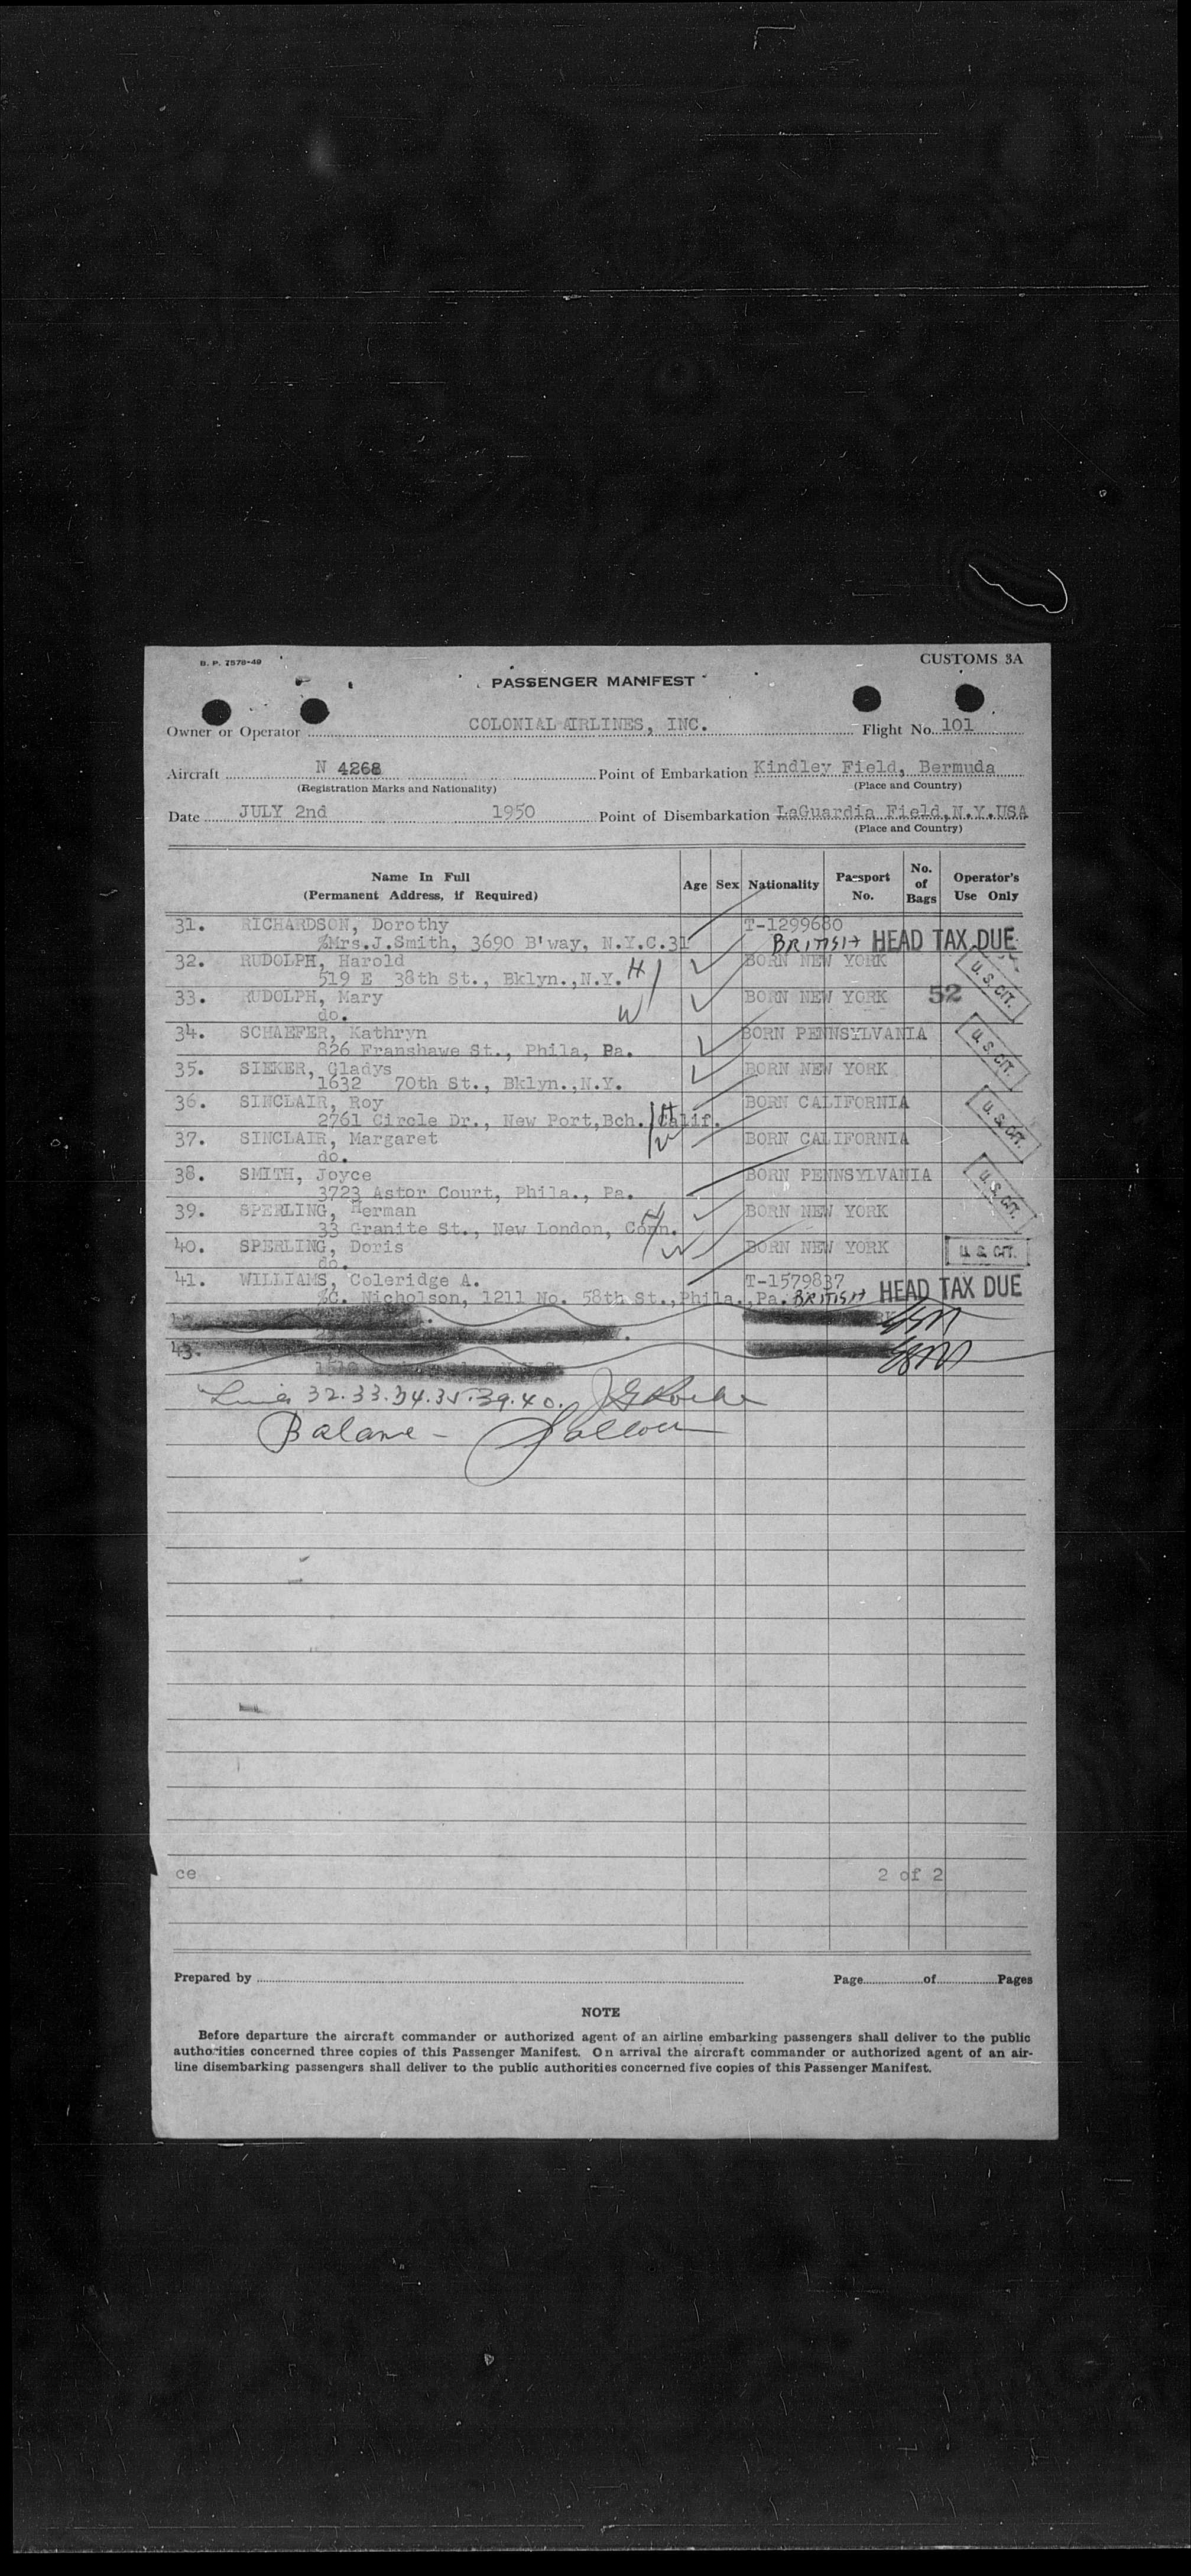 B. P. 7578-49
CUSTOMS 3A
PASSENGER MANIFEST
Owner or Operator COLONIAL AIRLINES, INC. Flight No. 101
Aircraft N 4268 Point of Embarkation Kindley Field, Bermuda
(Registration Marks and Nationality) (Place and Country)
Date JULY 2nd 1950 Point of Disembarkation LaGuardia Field,N.Y.USA
(Place and Country)
Name In Full (Permanent Address, if Required) Age Sex Nationality Passport No. No. of Bags Operator's Use Only
31. RICHARDSON, Dorothy T-1299680
%Mrs.J.Smith, 3690 B'way, N.Y.C.31 BRITISH HEAD TAX DUE
32. RUDOLPH, Harold BORN NEW YORK
519 E 38th St., Bklyn.,N.Y. H U.S. CIT.
33. RUDOLPH, Mary BORN NEW YORK 52
do. W
34. SCHAEFER, Kathryn BORN PENNSYLVANIA
826 Franshawe St., Phila, Pa. U.S. CIT.
35. SIEKER, Gladys BORN NEW YORK
1632 70th St., Bklyn.,N.Y.
36. SINCLAIR, Roy BORN CALIFORNIA
2761 Circle Dr., New Port,Bch. Calif. H U.S. CIT.
37. SINCLAIR, Margaret BORN CALIFORNIA
do. W
38. SMITH, Joyce BORN PENNSYLVANIA
3723 Astor Court, Phila., Pa. U.S. CIT.
39. SPERLING, Herman BORN NEW YORK
33 Granite St., New London, Conn. H
40. SPERLING, Doris BORN NEW YORK U.S. CIT.
do. W
41. WILLIAMS, Coleridge A. T-1579837
%C. Nicholson, 1211 No. 58th St.,Phila.,Pa. BRITISH HEAD TAX DUE
43.
32.33.34.35.39.40.
ce 2 of 2
Prepared by Page of Pages
NOTE
Before departure the aircraft commander or authorized agent of an airline embarking passengers shall deliver to the public
authorities concerned three copies of this Passenger Manifest. On arrival the aircraft commander or authorized agent of an air-
line disembarking passengers shall deliver to the public authorities concerned five copies of this Passenger Manifest.